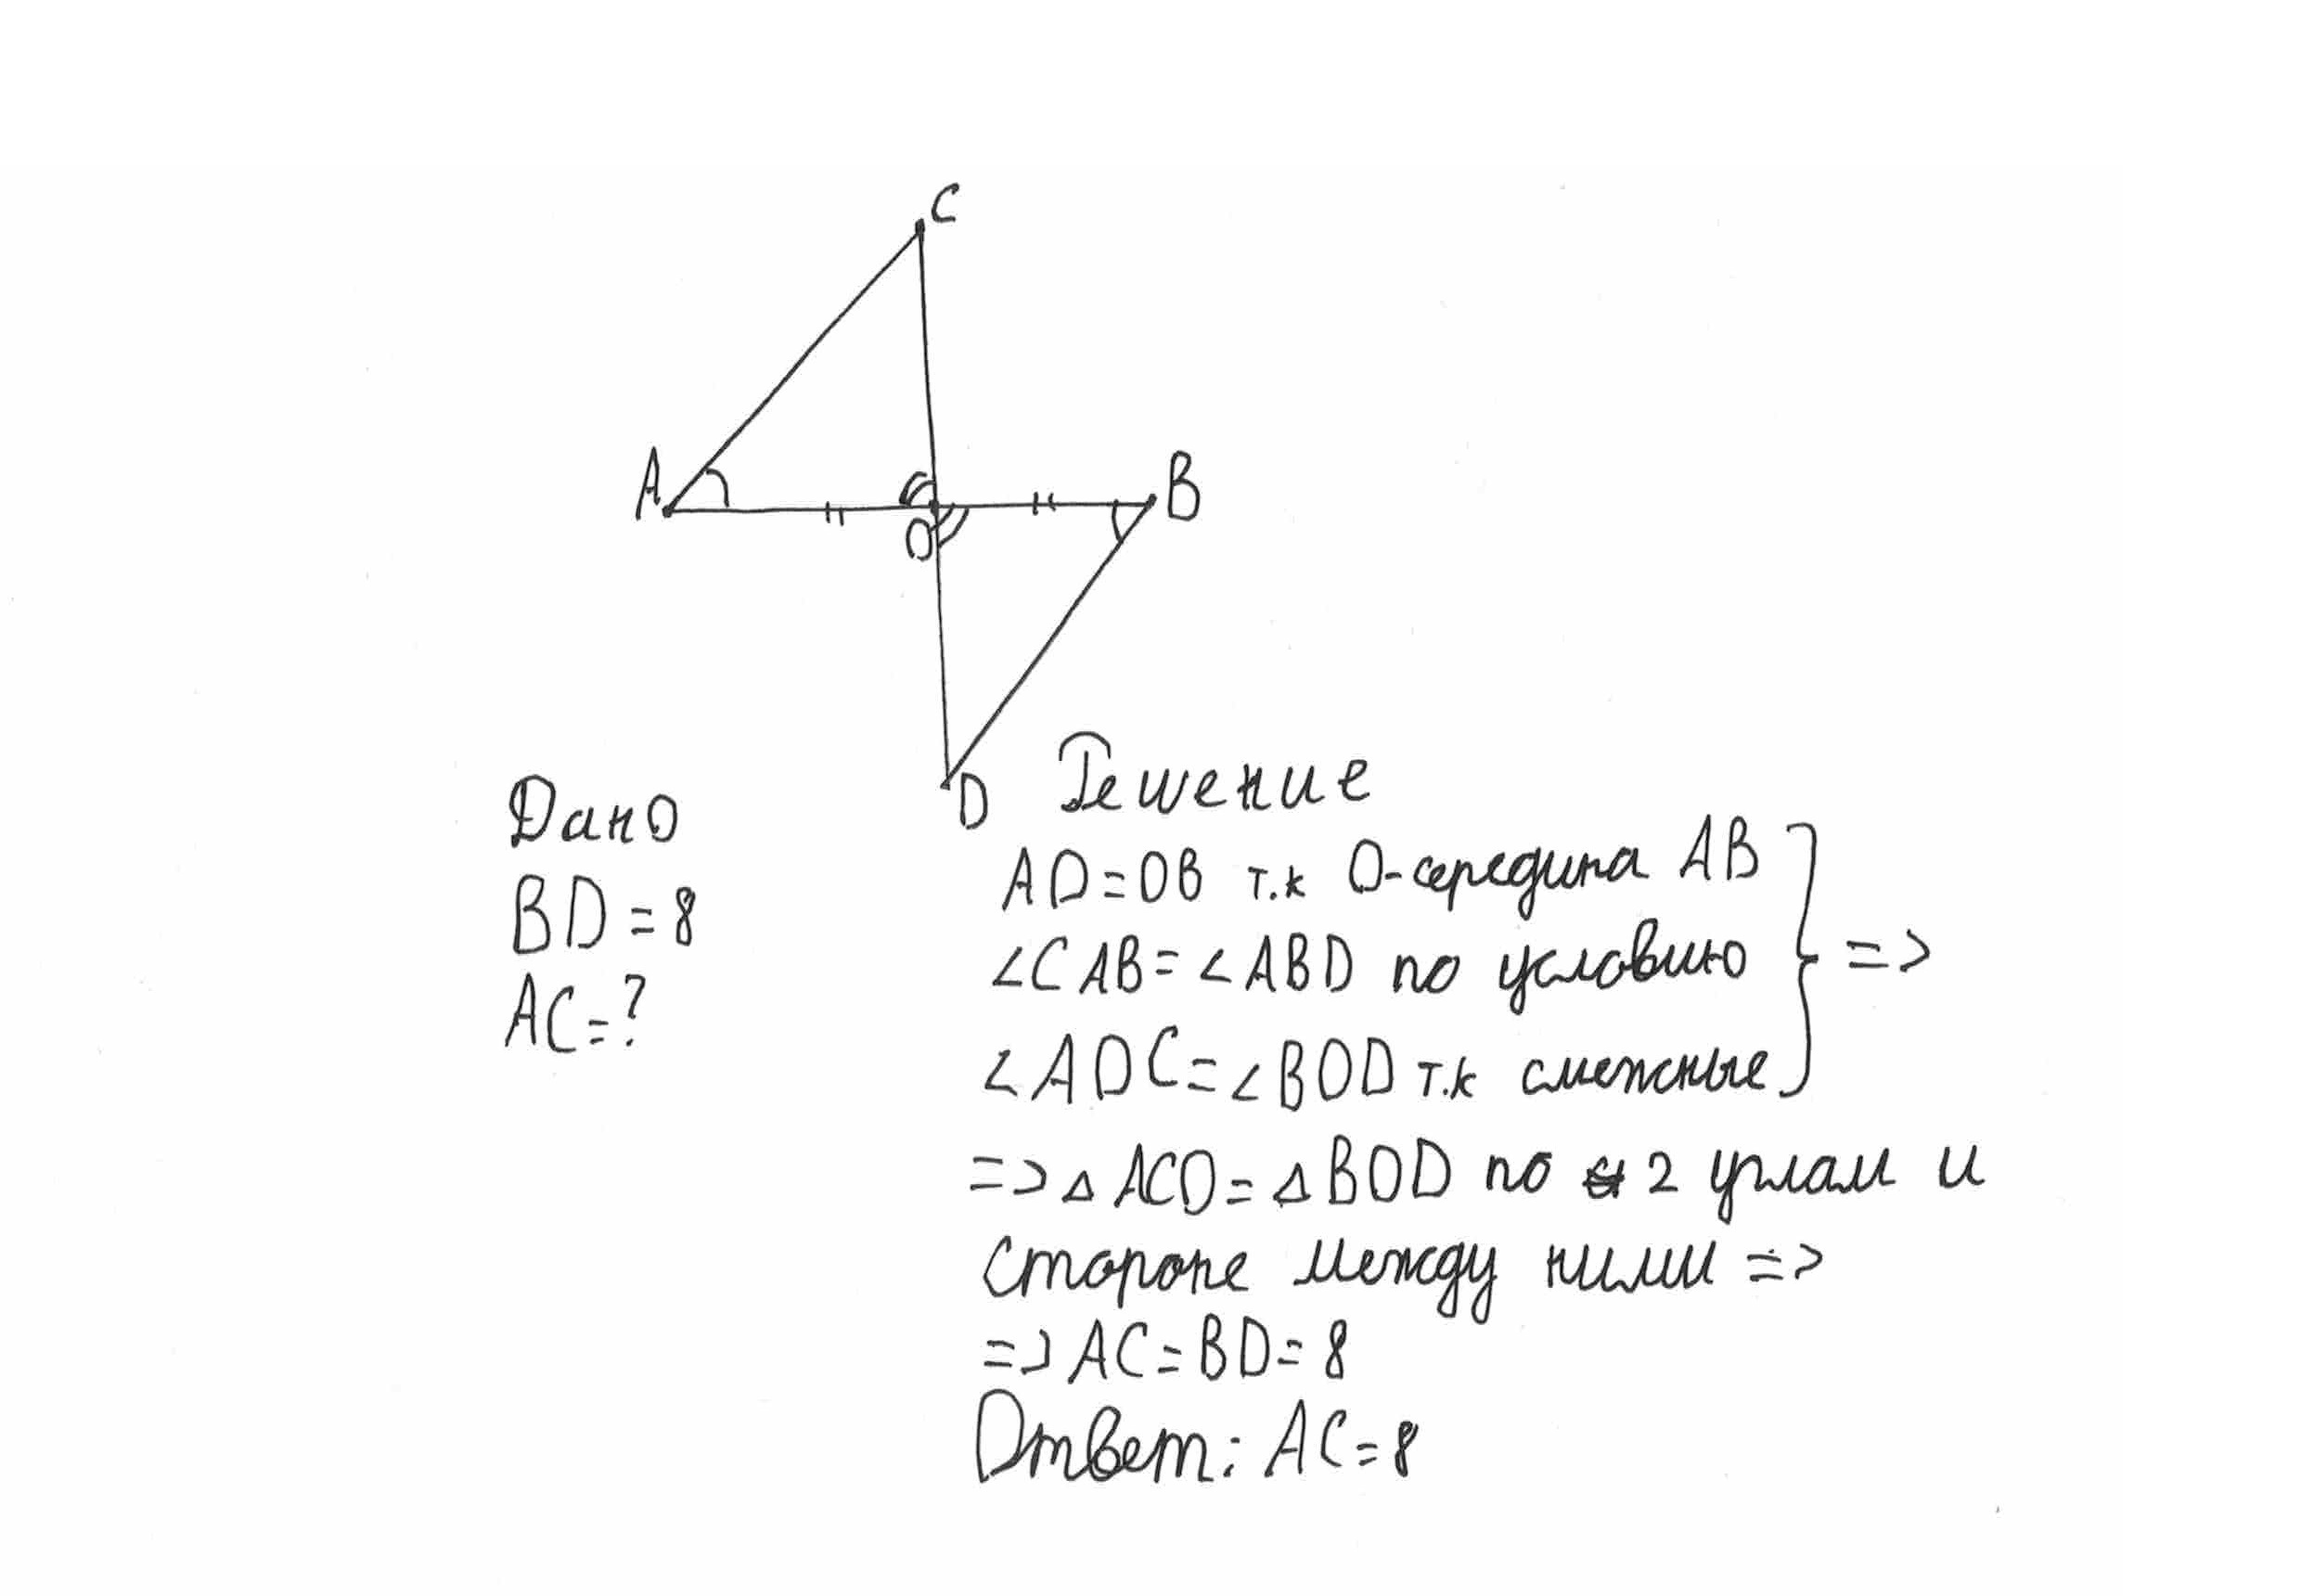 C
A
B
O
D
Дано
BD=8
AC=?
Решение
AO=OB т.к O-середина AB
∠CAB=∠ABD по условию } =>
∠AOC=∠BOD т.к смежные
=> △ACO=△BOD по 2 углам и
стороне между ними =>
=> AC=BD=8
Ответ: AC=8